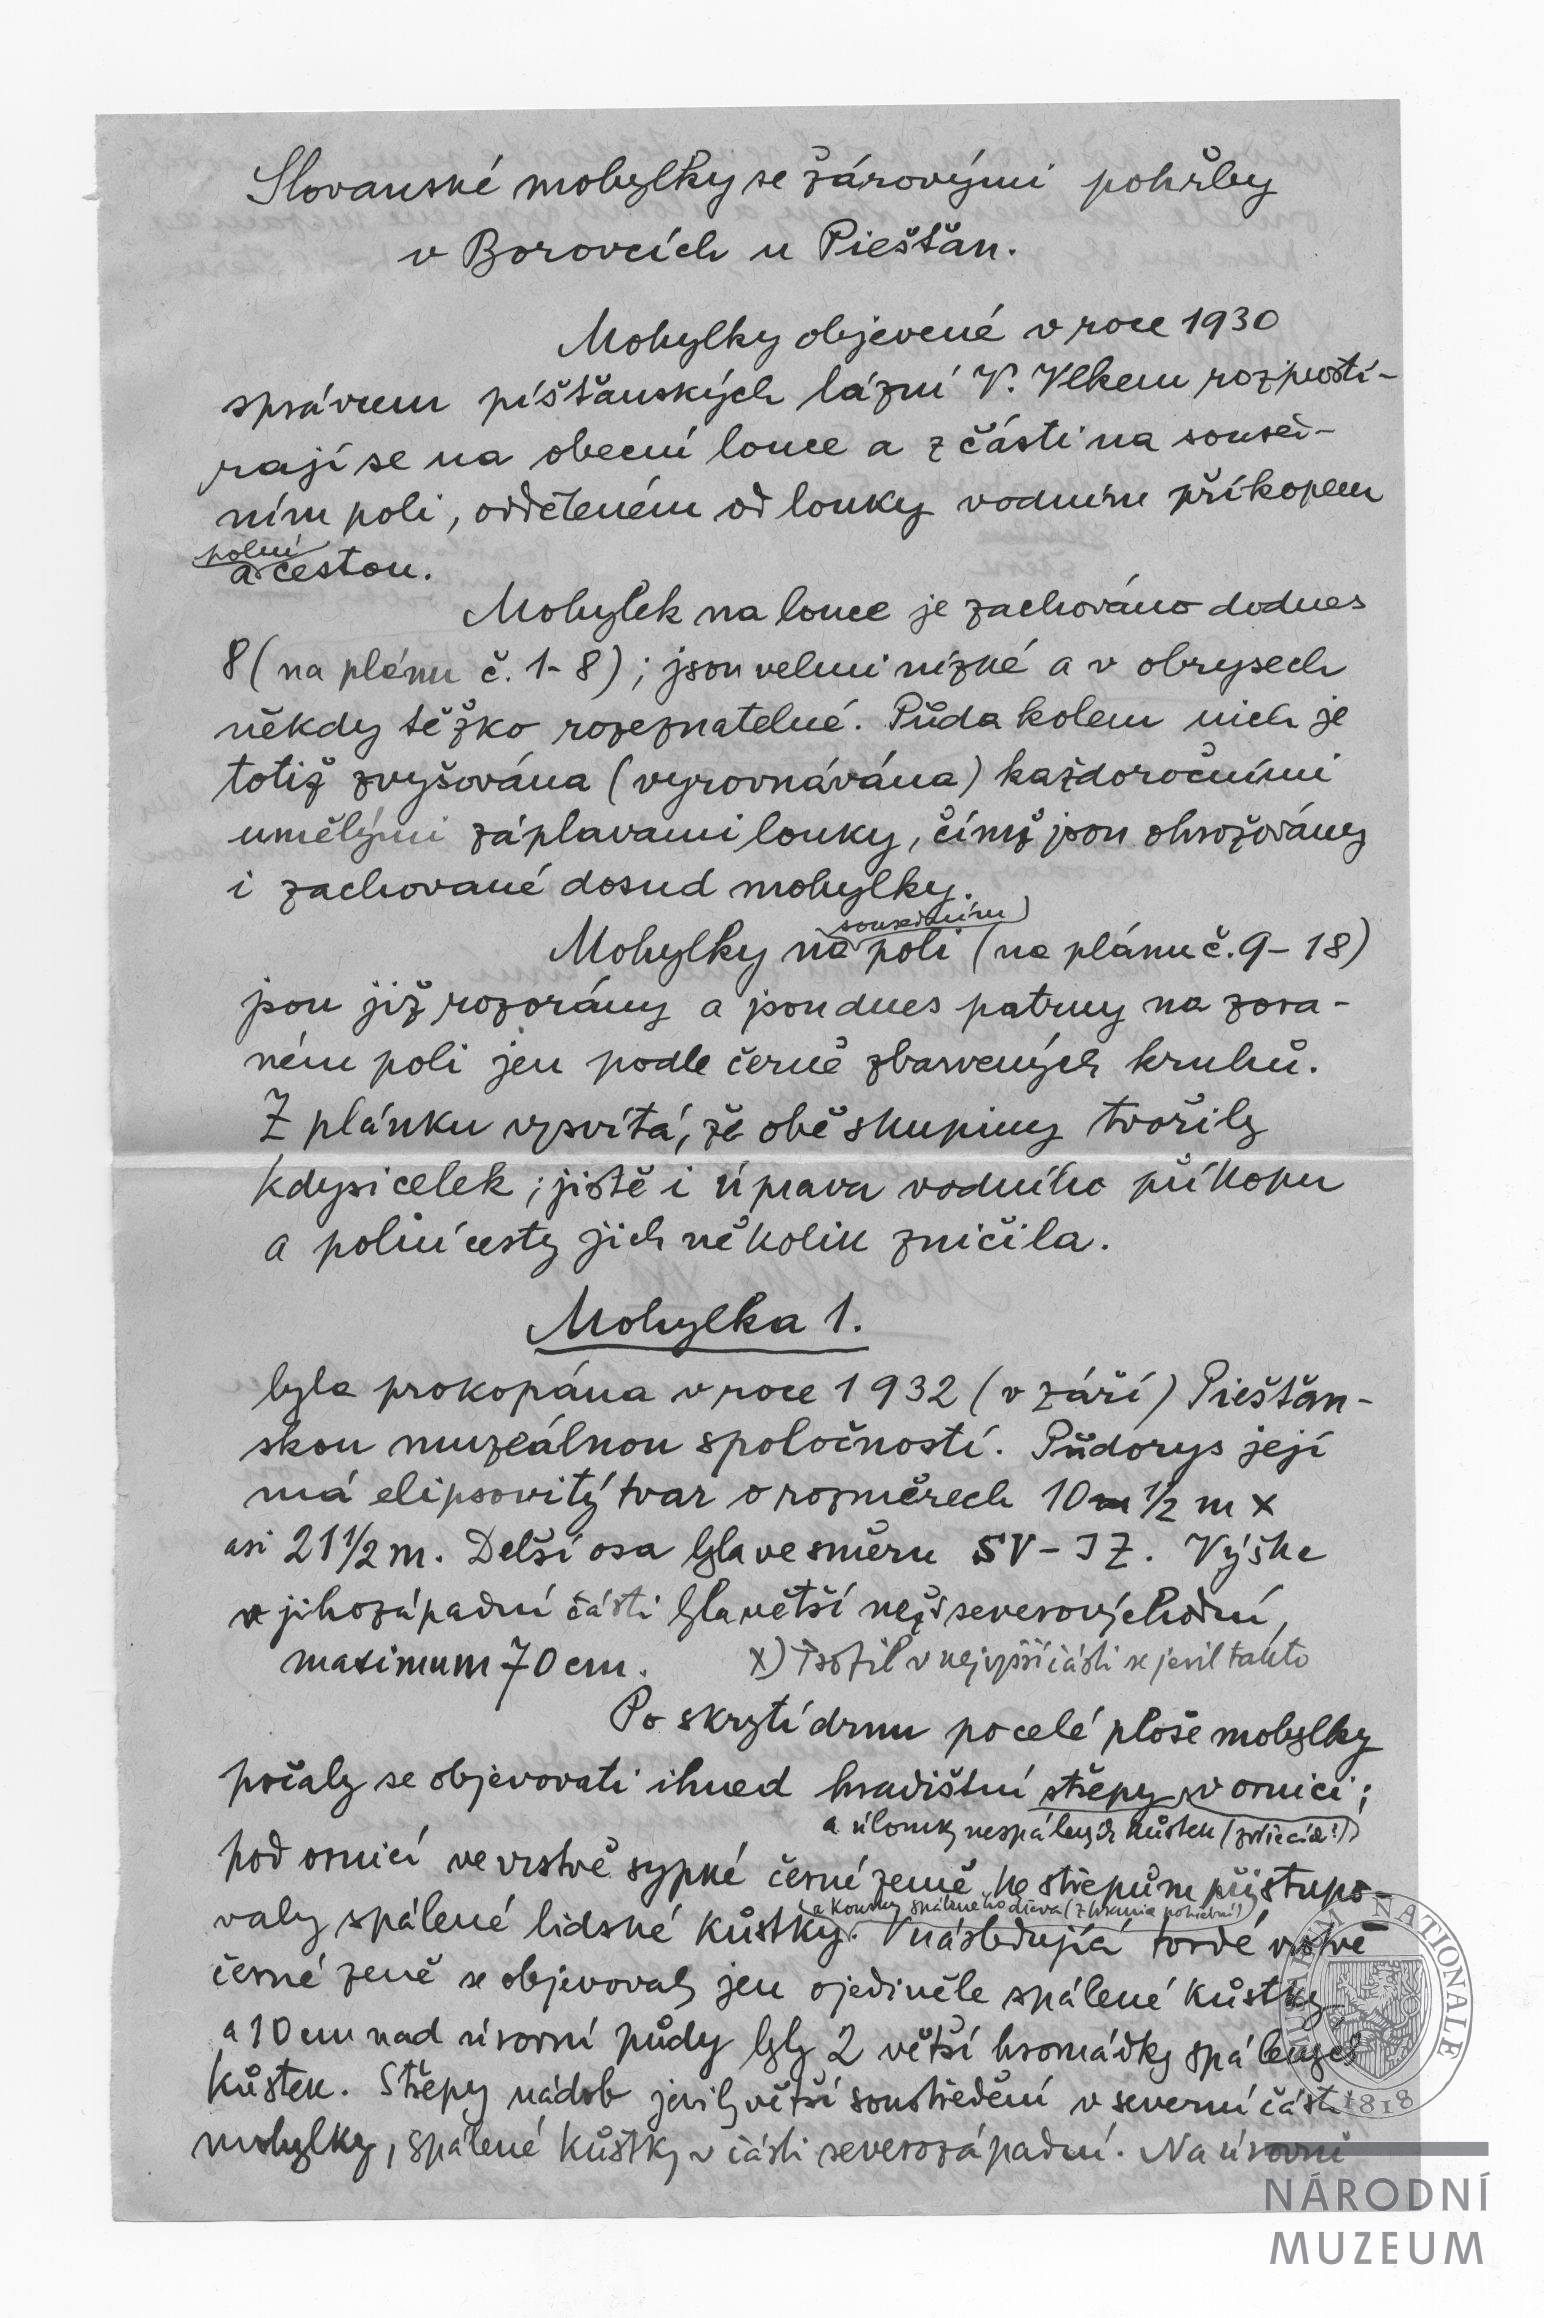 Slovanské mohylky se žárovými pohřby
v Borovcích u Piešťan.
Mohylky objevené v roce 1930
správcem píšťanských lázní V. Vlkem rozprostí-
rají se na obecní louce a z části na soused-
ním poli, odděleném od louky vodním příkopem
polní
a cestou.
Mohylek na louce je zachováno dodnes
8 (na plánu č. 1-8); jsou velmi nízké a v obrysech
někdy těžko rozeznatelné. Půda kolem nich je
totiž zvyšována (vyrovnávána) každoročními
umělými záplavami louky, čímž jsou ohrožovány
i zachované dosud mohylky.
sousedním
Mohylky na poli (na plánu č. 9-18)
jsou již rozorány a jsou dnes patrny na zora-
ném poli jen podle černě zbarvených kruhů.
Z plánku vysvítá, že obě skupiny tvořily
kdysi celek; jistě i úprava vodního příkopu
a polní cesty jich několik zničila.
Mohylka 1.
byla prokopána v roce 1932 (v září) Piešťan-
skou muzeálnou spoločností. Půdorys její
má elipsovitý tvar o rozměrech 10 m 1/2 m x
asi 21 1/2 m. Delší osa byla ve směru SV-JZ. Výška
v jihozápadní části byla větší než v severovýchodní,
maximum 70 cm. x) Profil v nejvyšší části se jevil takto
Po skrytí drnu po celé ploše mohylky
počaly se objevovati ihned hradištní střepy v ornici;
a úlomky nespálených kůstek (zvířecích!)
pod ornicí ve vrstvě sypké černé země ke střepům přistupo-
a kousky spáleného dřeva (z hranice pohřební)
valy spálené lidské kůstky. V následující tvrdé vrstvě
černé země se objevovaly jen ojediněle spálené kůstky
a 10 cm nad úrovní půdy byly 2 větší hromádky spálených
kůstek. Střepy nádob jevily větší soustředění v severní části
mohylky, spálené kůstky v části severozápadní. Na úrovni
MUSEUM NATIONALE
1818
NÁRODNÍ
MUZEUM